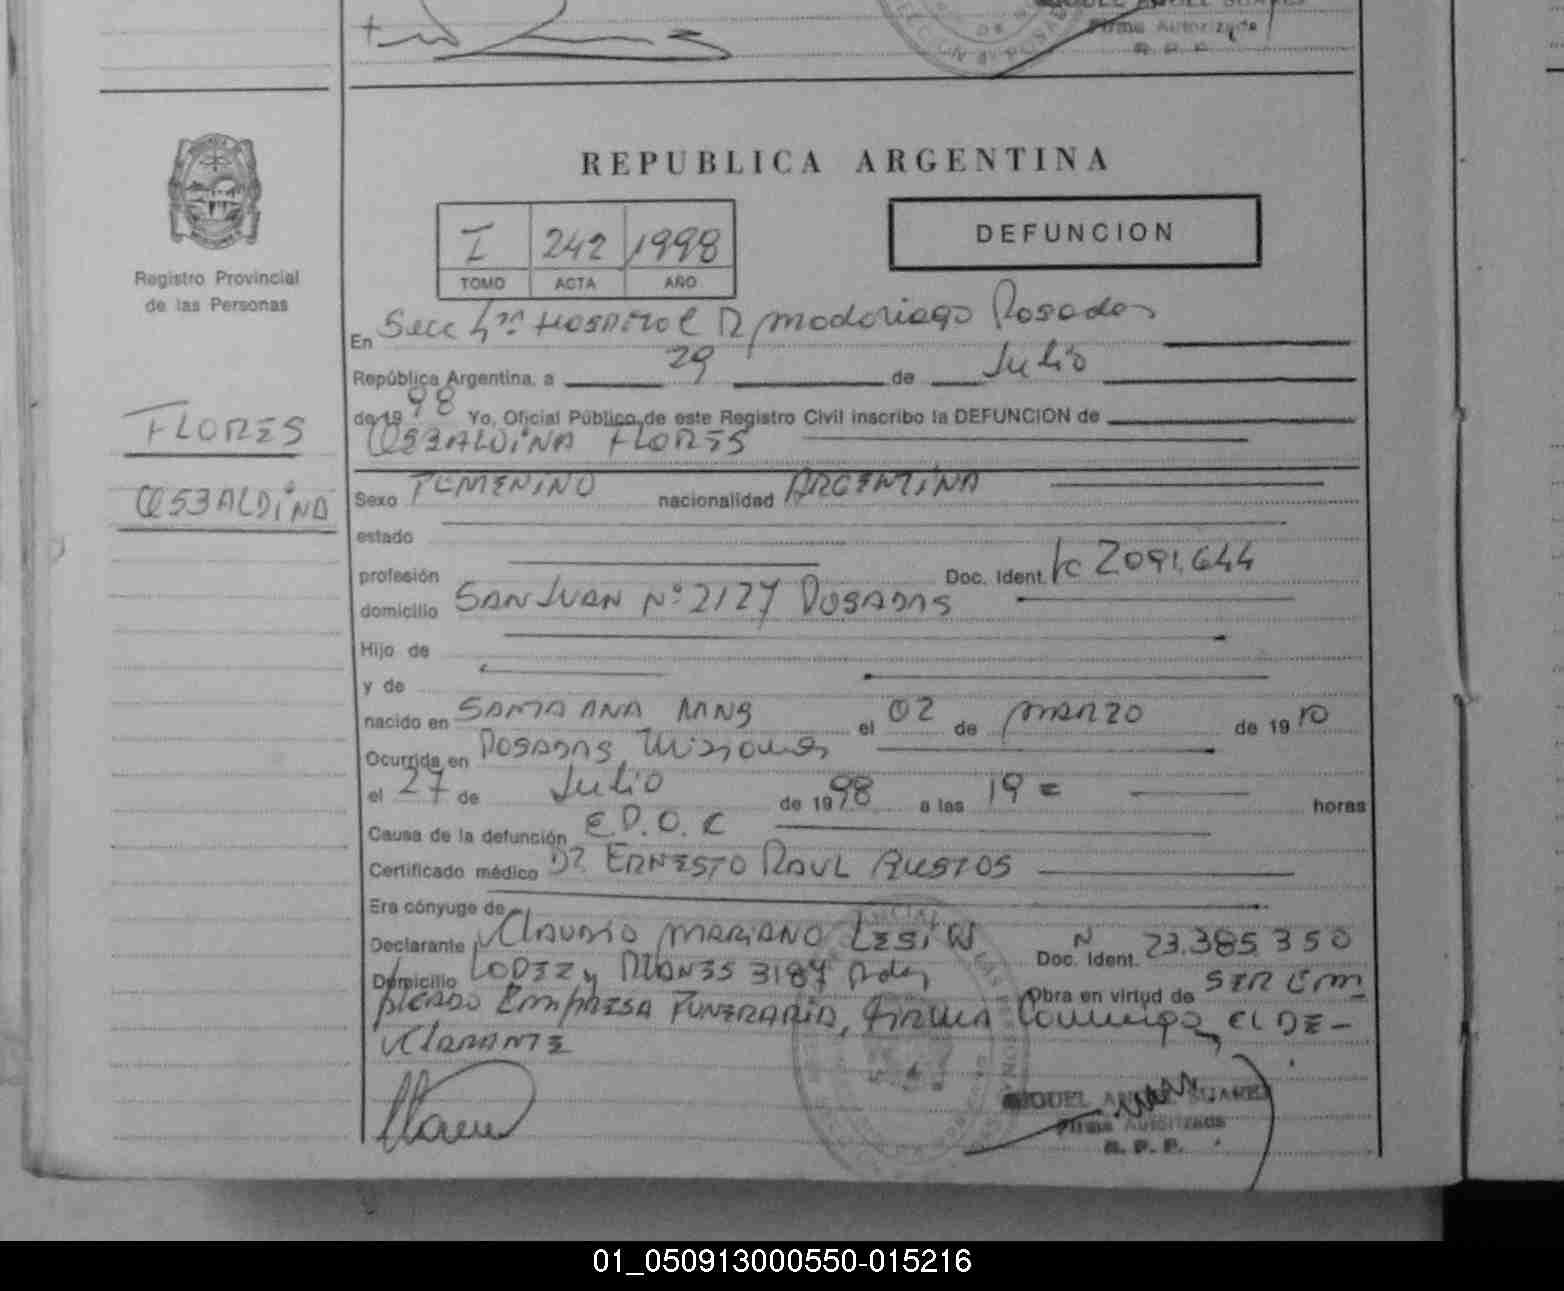 Firma Autorizada
R. P. P.
REPUBLICA ARGENTINA
I 242 1998
TOMO ACTA AÑO
DEFUNCION
Registro Provincial
de las Personas
En Secc 4ta Hospital R Madariaga Posadas
República Argentina, a 29 de Julio
de 19 98 Yo, Oficial Público de este Registro Civil inscribo la DEFUNCION de
FLORES
OSBALDINA FLORES
OSBALDINA
Sexo FEMENINO nacionalidad ARGENTINA
estado
profesión Doc. Ident. Lc 2091.644
domicilio SAN JUAN Nº 2127 POSADAS
Hijo de
y de
nacido en SANTA ANA MNS el 02 de MARZO de 19 10
Ocurrida en POSADAS Misiones
el 27 de Julio de 19 98 a las 19 = horas
Causa de la defunción E.P.O.C
Certificado médico Dr ERNESTO RAUL BUSTOS
Era cónyuge de
Declarante CLAUDIO MARIANO Doc. Ident. N 23.385 350
Domicilio LOPEZ y PLANES 3187 Pdas Obra en virtud de SER EM
PLEADO EMPRESA FUNERARIA, FIRMA Conmigo EL DE-
CLARANTE
MIGUEL ANGEL SUAREZ
Firma Autorizada
R. P. P.
01_050913000550-015216